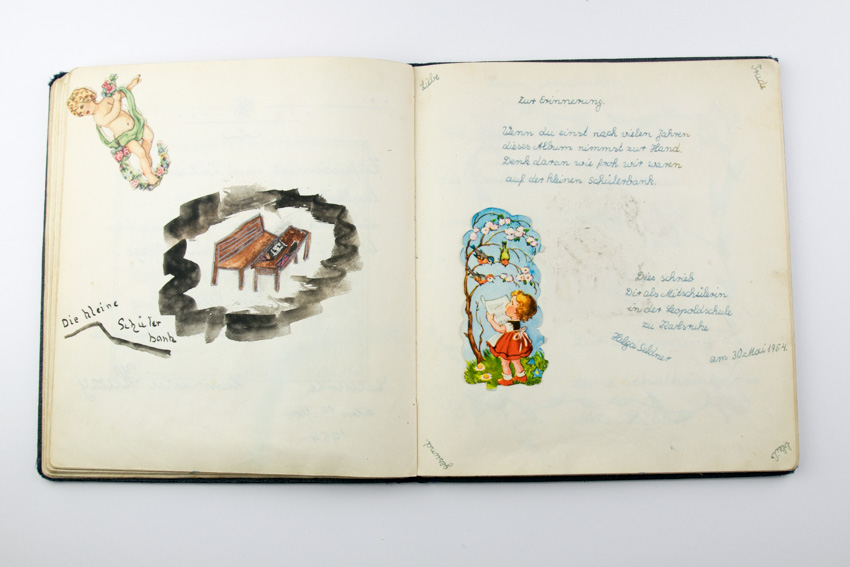 Die kleine
Schüler
bank
Liebe
Zur Erinnerung.
Wenn du einst nach vielen Jahren
dieses Album nimmst zur Hand.
Denk daran wie froh wir waren
auf der kleinen Schülerbank.
Dies schrieb
Dir als Mitschülerin
in der Leopoldschule
zu Karlsruhe
Helga
am 30. Mai 1954.